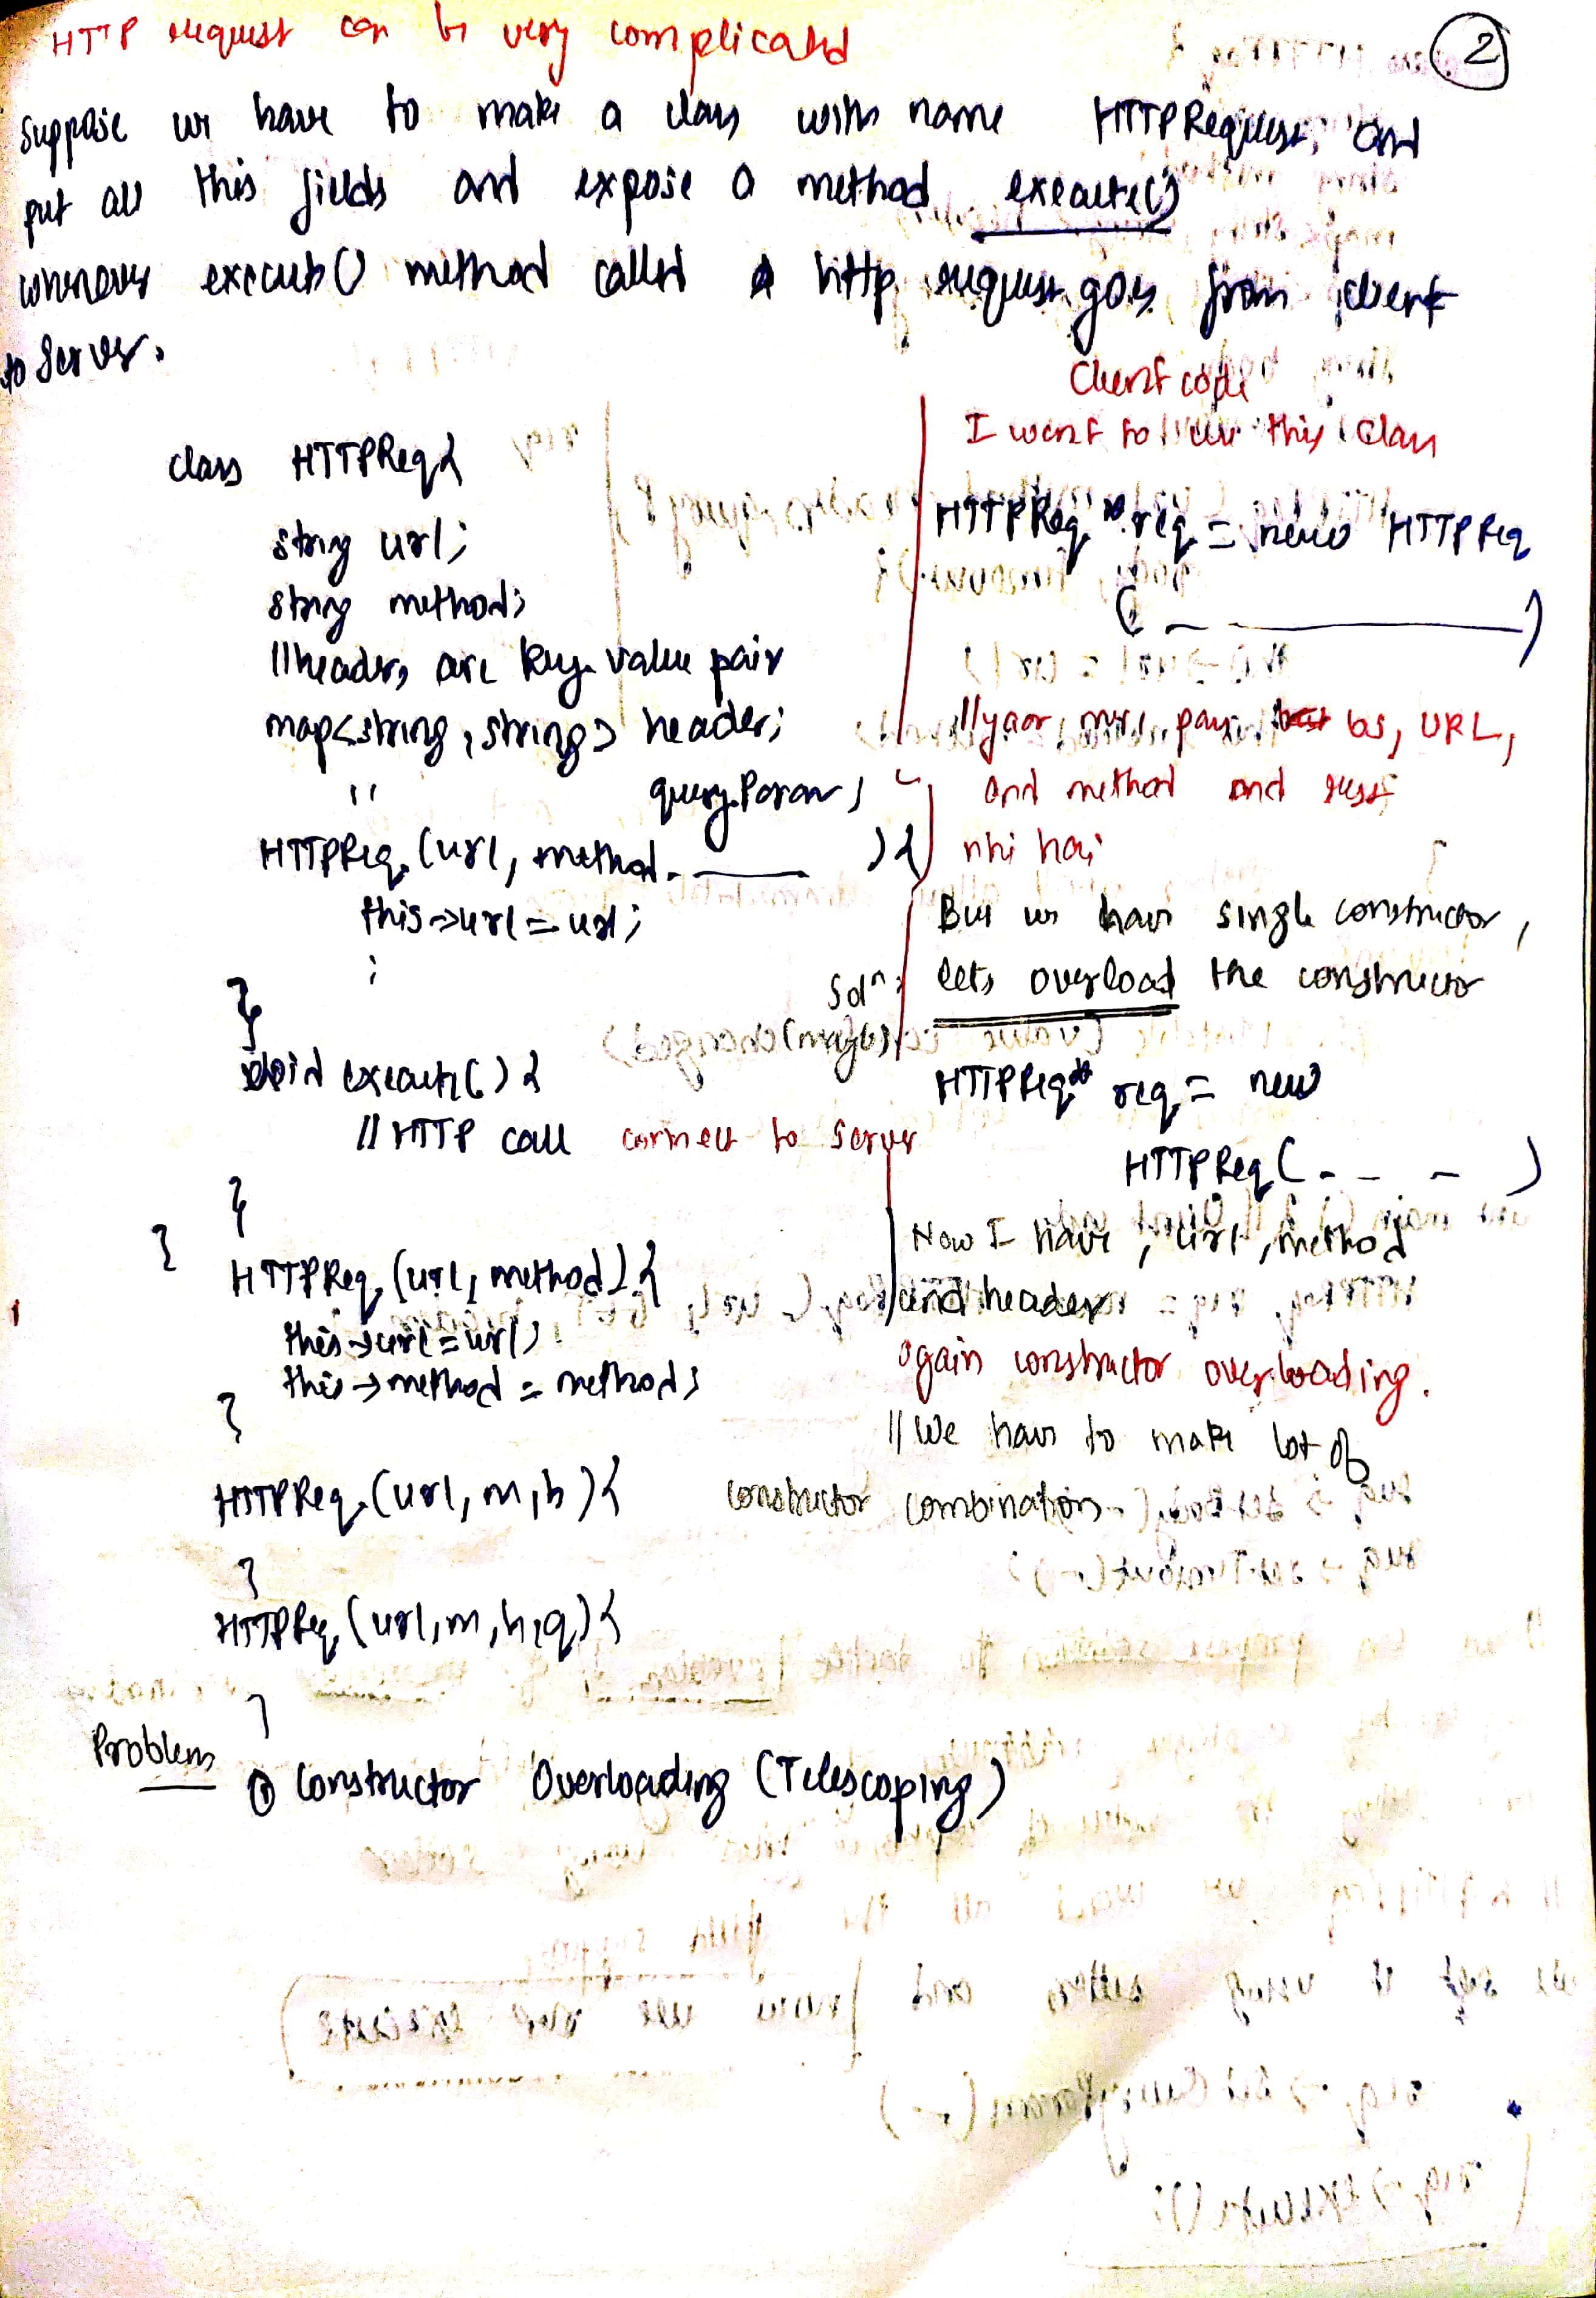 HTTP request can be very complicated
2
Suppose we have to make a class with name HTTPRequest, and
put all this fields and expose a method execute()
whenever execute() method called a http request goes from client
to server.
class HTTPReq{
string url;
string method;
//headers are key-value pair
map<string, string> header;
" queryParam;
HTTPReq(url, method - ____ ){
this->url = url;
:
}
void execute(){
//HTTP call connect to server
}
}
HTTPReq(url, method){
this->url = url;
this->method = method;
}
HTTPReq(url, m, h){
}
HTTPReq(url, m, h, q){
}
Client code
I want to use this class
HTTPReq *req = new HTTPReq
( - ____ )
//yaar mere pass bs, URL,
and method and rest
nhi hai
But we have single constructor,
Solⁿ: lets overload the constructor
HTTPReq* req = new
HTTPReq( - - - )
Now I have, url, method
and header
again constructor overloading.
//We have to make lot of
constructor combination-
Problem
① Constructor Overloading (Telescoping)